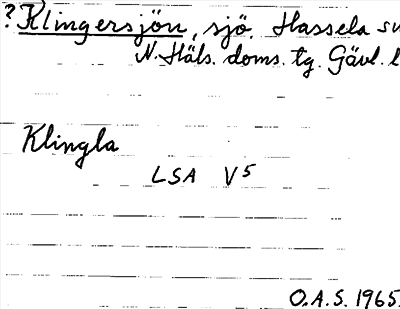 ?Klingersjön, sjö, Hassela
N. Häls. doms. tg. Gävl. l
Klingla
LSA V5
O.A.S. 1965.